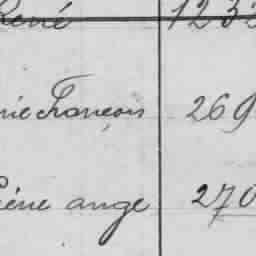 René 1232
nie François 269
rène ange 270